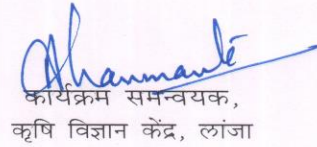 कार्यक्रम समन्वयक,
कृषि विज्ञान केंद्र, लांजा